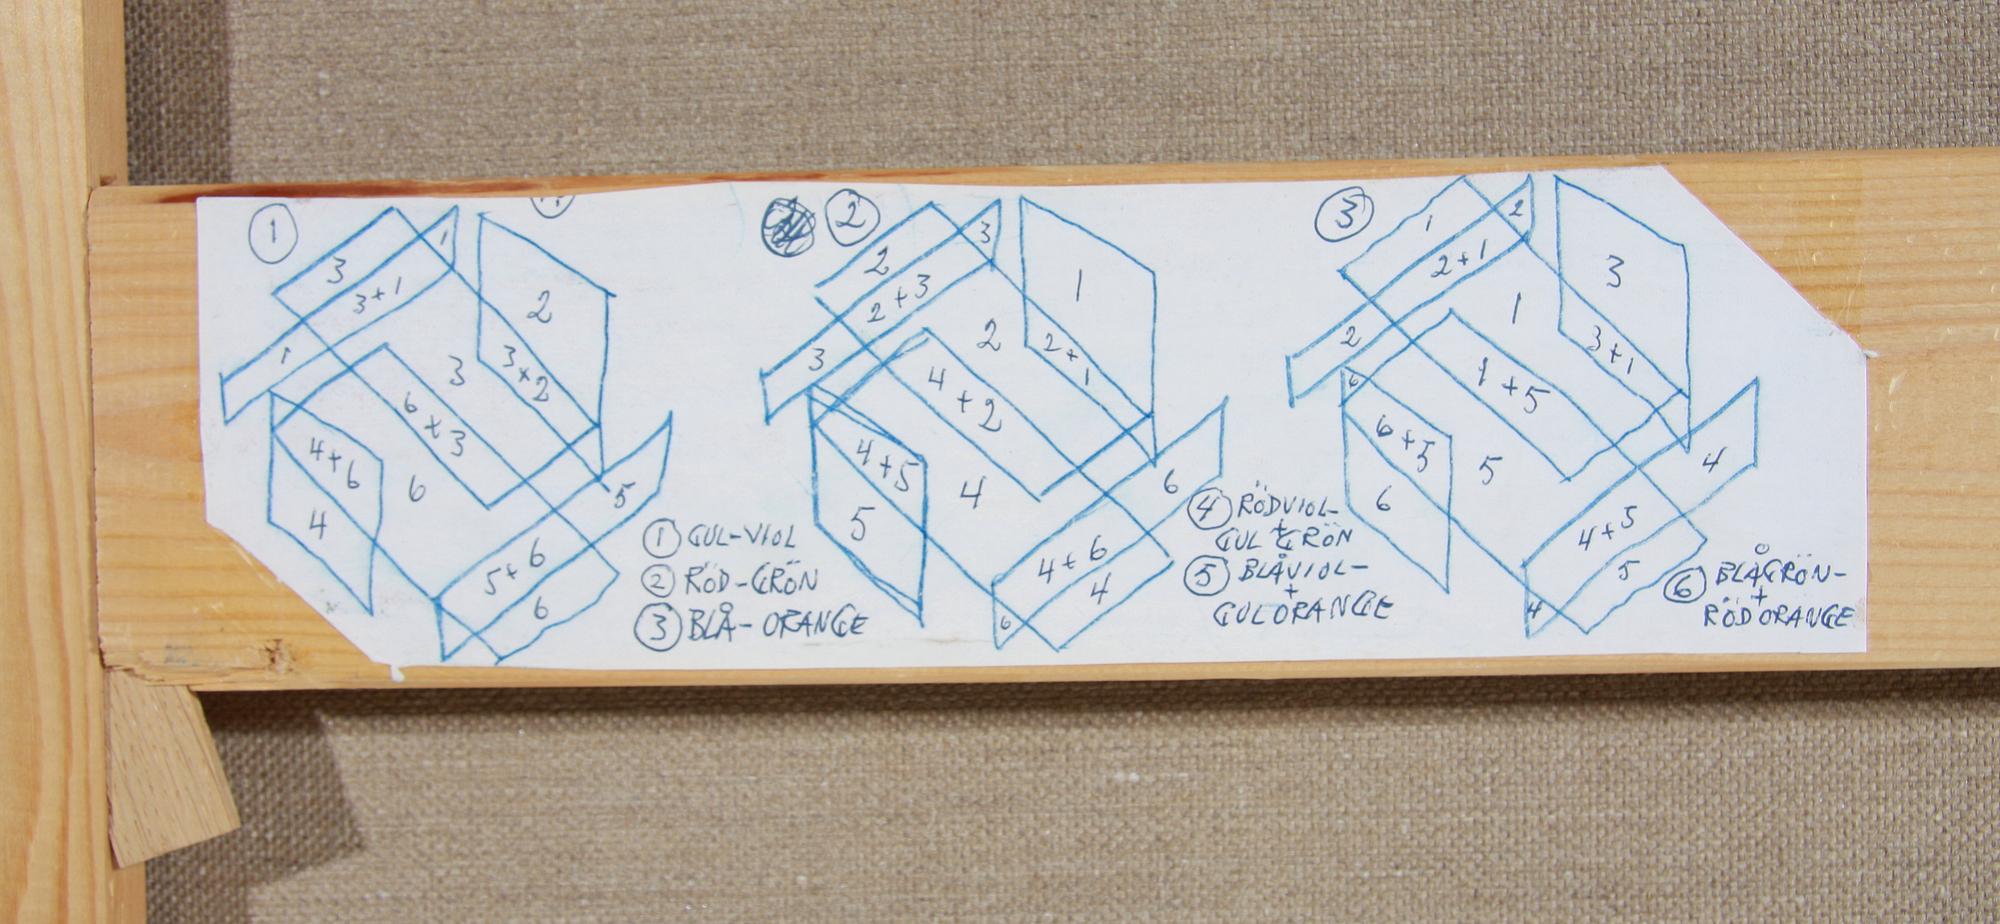 1
3
1
3+1
2
1
3
3+2
6x3
4+6
6
4
5
5+6
6
① GUL-VIOL
② RÖD-GRÖN
③ BLÅ-ORANGE
2
2
3
2+3
1
3
2
2+1
4+2
4+5
4
6
5
4+6
4
6
④ RÖDVIOL-
+
GULGRÖN
⑤ BLÅVIOL-
+
GULORANGE
3
1
2
2+1
3
1
2
3+1
6
1+5
6+5
5
4
6
4+5
5
4
⑥ BLÅGRÖN-
+
RÖDORANGE